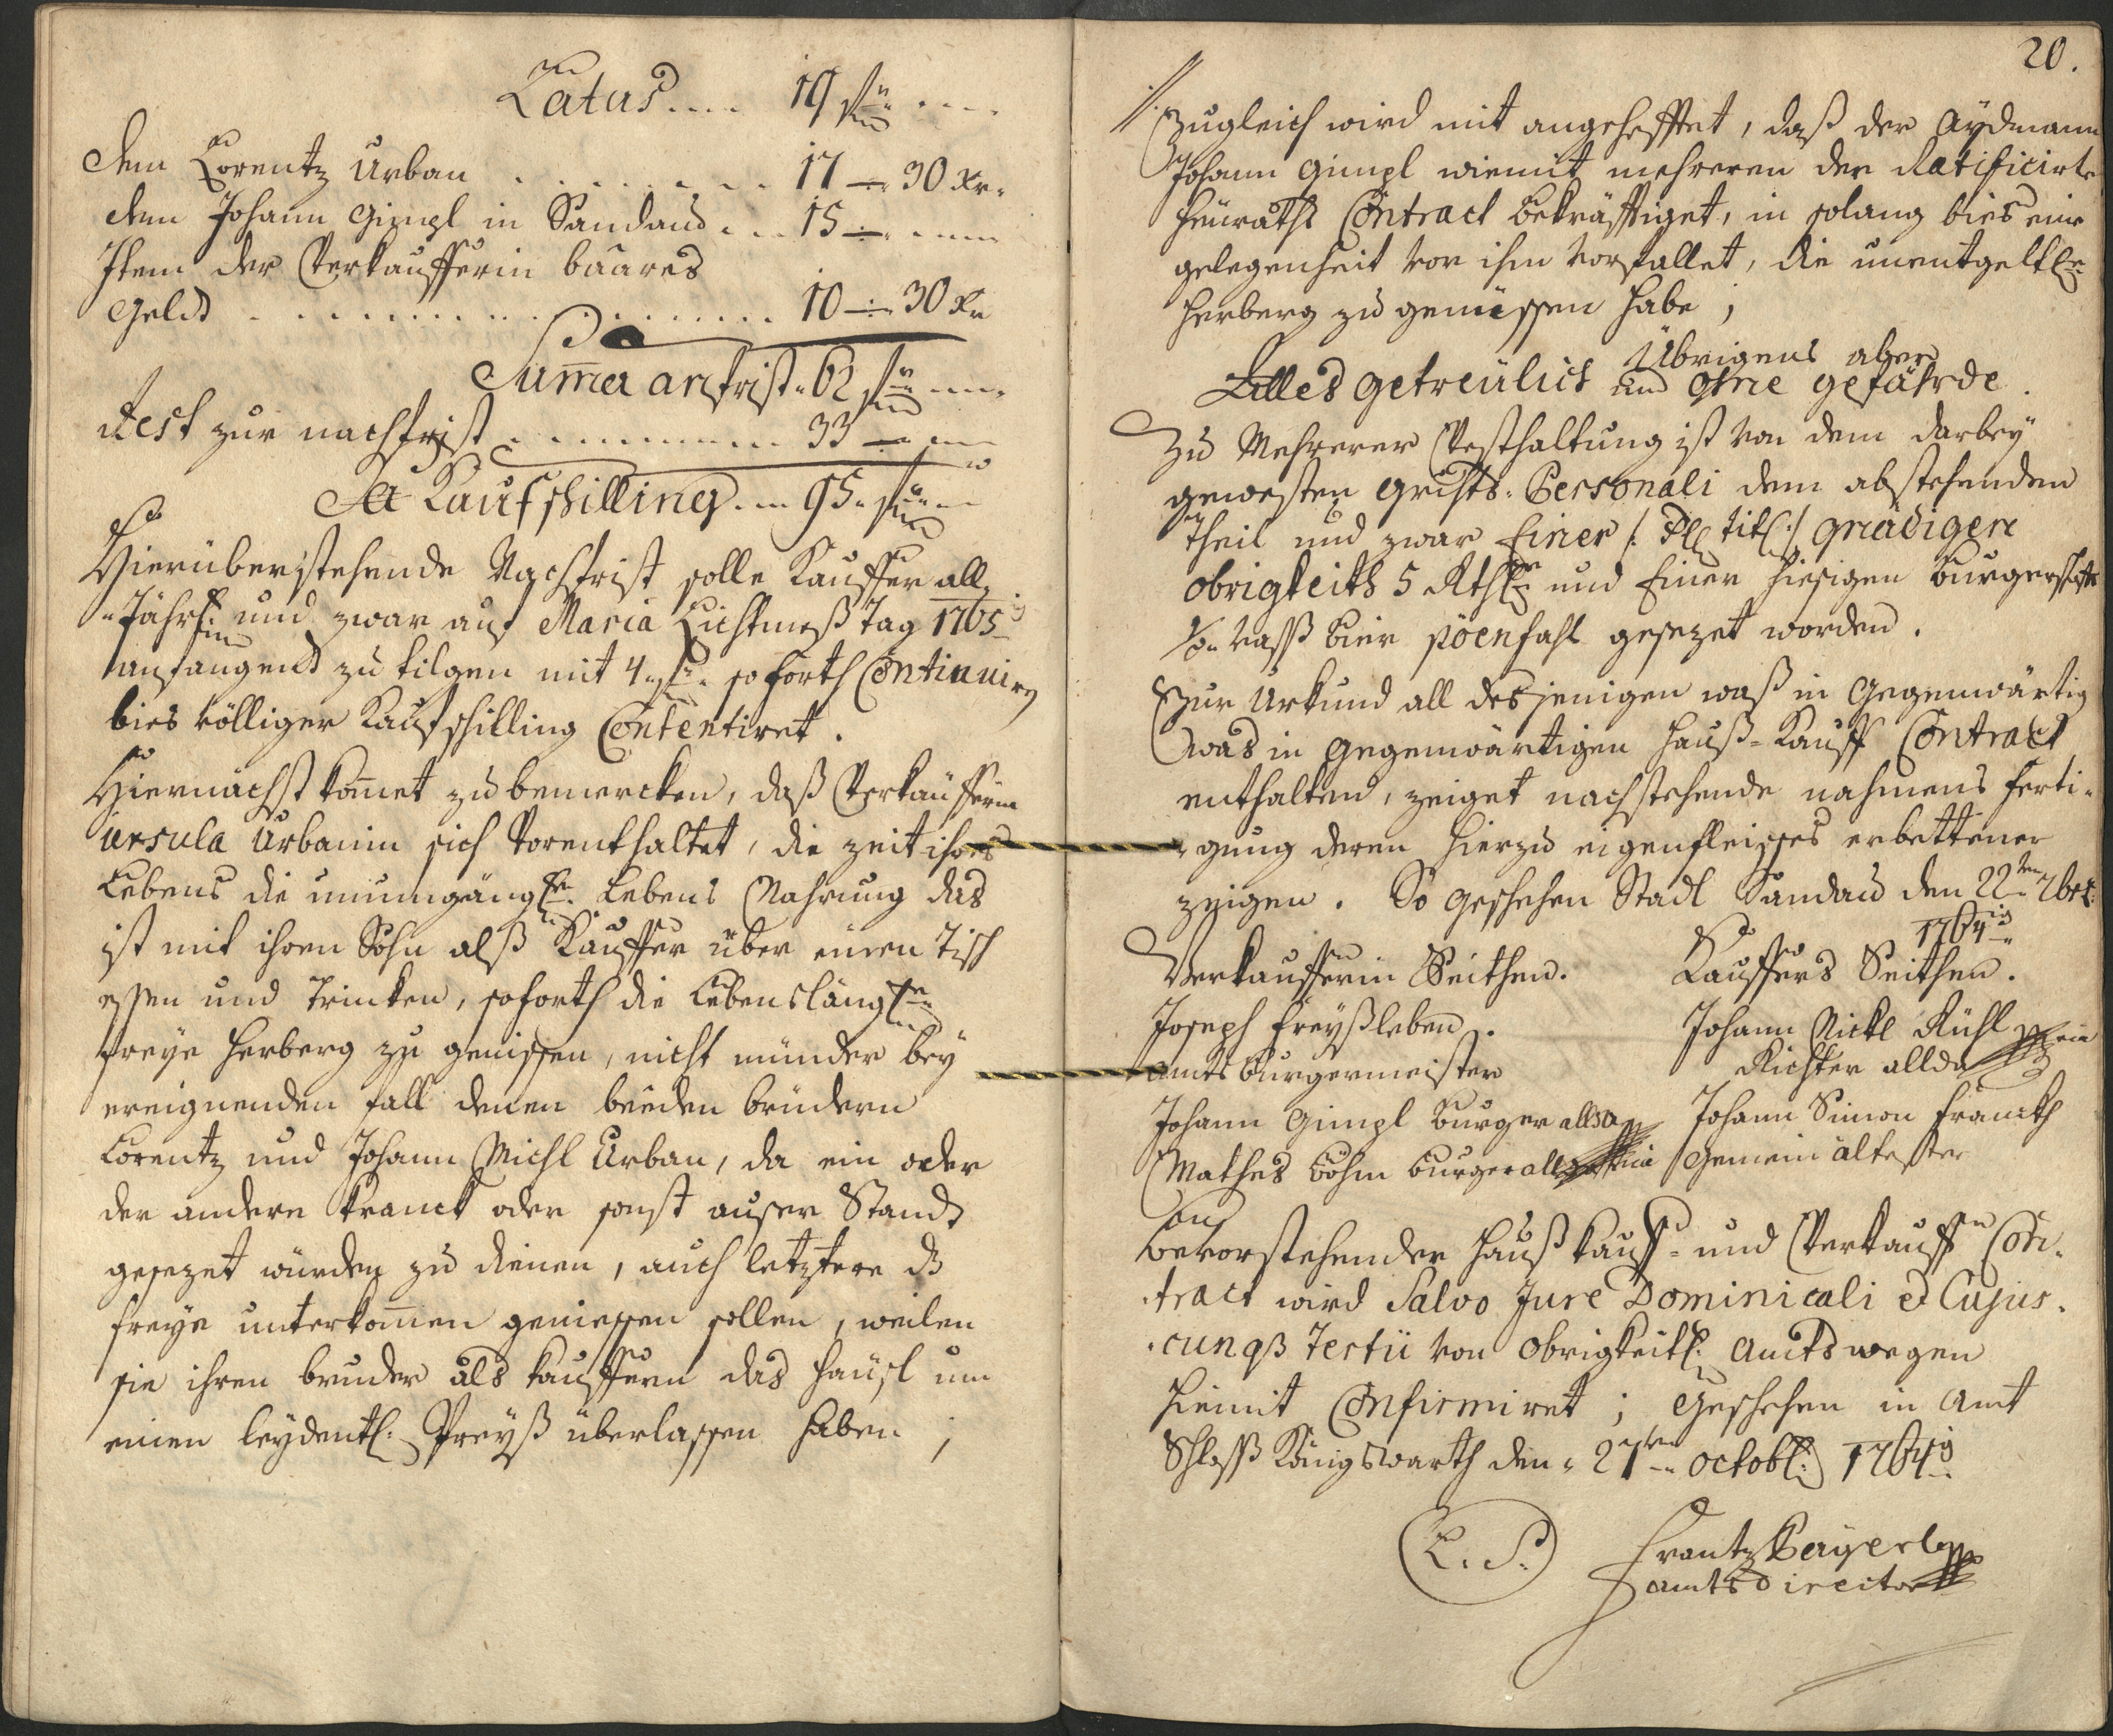 Latus.... 19 fl
dem Lorentz Urban ........ 17 — 30 Xr.
dem Johann Gimpl in Sandau... 15 —
Item der Verkaufferin baares
Geld .................. 10 — 30 Xr
Suma anfrist. 62 fl
Rest zur nachfrist .......... 33 —
Kaufschilling.... 95. fl
Hierüberstehende Nachfrist solle Kauffer all
Jährl und zwar auf Maria Lichtmeß Tag 1765
anfangend zu tilgen mit 4. fl. so forth Continuiren
bies völliger Kaufschilling Contentiret.
Hiernächst komet zu bemercken, daß Verkäufferin
Ursula Urbanin sich Vorenthaltet, die zeit ihres
Lebens die unumgängl. Lebens Nahrung das
ist mit ihren Sohn alß Kauffer über einen Tisch
essen und Trincken, soforth die Lebenslängl.
freye Herberg zu geniessen, nicht münder bey
ereignenden fall denen beeden brüdern
Lorentz und Johann Michl Urban, da ein oder
der andere kranck oder sonst auser Standt
gesezet würden zu dienen, auch letztere
freye unterkomen geniessen sollen, weilen
sie ihren bruder als kauffern das Häusl um
einen leydentl. Preyß überlassen haben;
20.
Zugleich wird mit angehefftet, daß der Aydmann
Johann Gimpl wiemit mehreren der Ratificirte
Heuraths Contract bekräfftiget, in solang bies eine
gelegenheit vor ihm vorfallet, die unentgeltl.
Herberg zu geniessen habe;
Übrigens aber
Alles getreülich und ohne gefährde.
Zu Mehrerer Vesthaltung ist von dem darbey
gewesten grichts-Personali dem abstehenden
Theil und zwar Einer /: titl :/ gnädigen
obrigkeith 5 Rthl und Einer hiesigen burgerschafft
Vasß bier pöenfahl gesezet worden.
Zur Urkund all desjenigen waß in gegenwärtig
was in gegenwärtigen Hauß-Kauff Contract
enthalten, zeiget nachstehende nahmens ferti-
gung deren hierzu eigenfleisses erbettener
zeigen. So geschehen Stadl Sandau den 22ten 7bris.
1764
Verkaufferin Seithen. Kauffers Seithen.
Joseph freyßleben. Johann Nickl Rühl
amts burgermeister Richter allda
Johann Gimpl burger allda Johann Simon Franckh
Mathes böhm burger allda Gemein ältester
bevorstehender Haußkauff- und Verkauff Con-
tract wird Salvo Jure Dominicali et Cujus-
cunqß Tertii von obrigkeitl. Amts wegen
hiemit Confirmiret; Geschehen in Amt
Schloß Königswarth den. 27ten octobl: 1764
L. S. Frantz Bayerl
amtsdirector